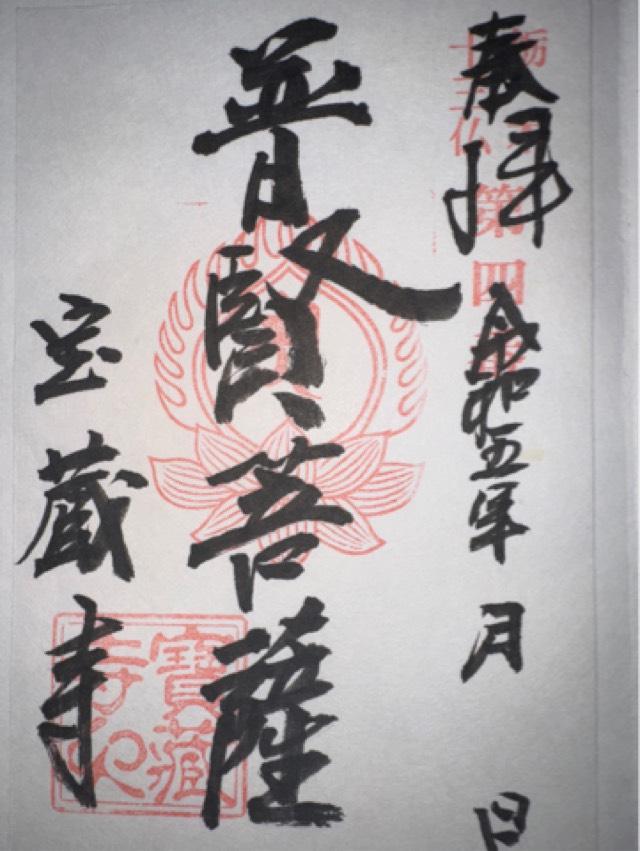 奉拝
十三仏
第四番
令和五年 月 日
普賢菩薩
宝蔵寺
寶藏寺印